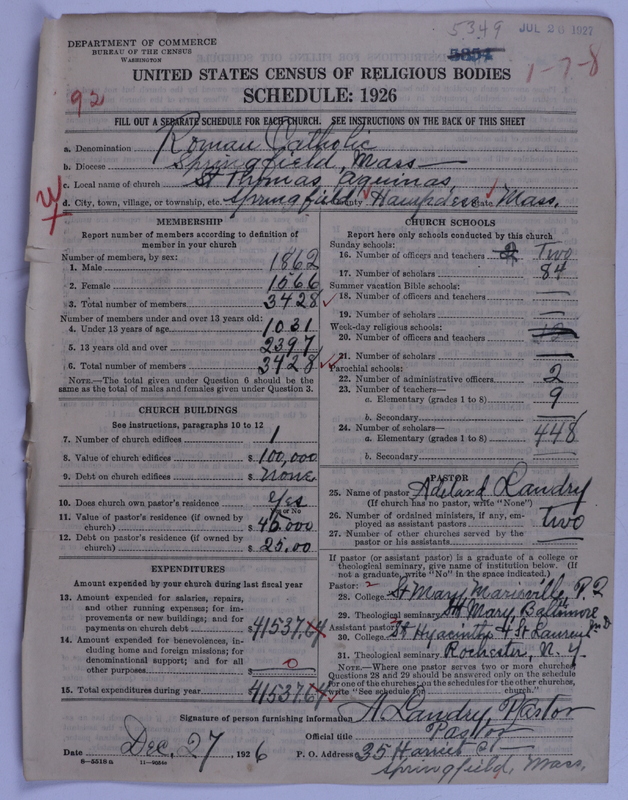 5349
JUL 20 1927
5854
DEPARTMENT OF COMMERCE
BUREAU OF THE CENSUS
WASHINGTON
1-7-8
UNITED STATES CENSUS OF RELIGIOUS BODIES
SCHEDULE: 1926
92
FILL OUT A SEPARATE SCHEDULE FOR EACH CHURCH. SEE INSTRUCTIONS ON THE BACK OF THIS SHEET
a. Denomination Roman Catholic
b. Diocese Springfield, Mass
c. Local name of church St Thomas Aquinas,
d. City, town, village, or township, etc. Springfield County Hampden State Mass.
MEMBERSHIP
Report number of members according to definition of
member in your church
Number of members, by sex:
1. Male 1862
2. Female 1566
3. Total number of members 3428
Number of members under and over 13 years old:
4. Under 13 years of age 1031
5. 13 years old and over 2397
6. Total number of members 3428
NOTE.—The total given under Question 6 should be the
same as the total of males and females given under Question 3.
CHURCH BUILDINGS
See instructions, paragraphs 10 to 12
7. Number of church edifices 1
8. Value of church edifices $ 100,000
9. Debt on church edifices $ none
10. Does church own pastor's residence yes
Yes or No
11. Value of pastor's residence (if owned by
church) $ 45,000
12. Debt on pastor's residence (if owned by
church) $ 25.00
EXPENDITURES
Amount expended by your church during last fiscal year
13. Amount expended for salaries, repairs,
and other running expenses; for im-
provements or new buildings; and for
payments on church debt $ 41537.64
14. Amount expended for benevolences, in-
cluding home and foreign missions; for
denominational support; and for all
other purposes $ 0
15. Total expenditures during year $ 41537.64
CHURCH SCHOOLS
Report here only schools conducted by this church
Sunday schools:
16. Number of officers and teachers 2 Two
17. Number of scholars 84
Summer vacation Bible schools:
18. Number of officers and teachers —
19. Number of scholars —
Week-day religious schools:
20. Number of officers and teachers
21. Number of scholars —
Parochial schools:
22. Number of administrative officers 2
23. Number of teachers—
a. Elementary (grades 1 to 8) 9
b. Secondary
24. Number of scholars—
a. Elementary (grades 1 to 8) 448
b. Secondary —
PASTOR
25. Name of pastor Adelard Landry
(If church has no pastor, write "None")
26. Number of ordained ministers, if any, em-
ployed as assistant pastors Two
27. Number of other churches served by the
pastor or his assistants —
If pastor (or assistant pastor) is a graduate of a college or
theological seminary, give name of institution below. (If
not a graduate, write "No" in the space indicated.)
Pastor:
28. College St Mary, Marieville, P.Q
29. Theological seminary St Mary, Baltimore
Assistant pastor:
30. College St Hyacinth & St Laurent
31. Theological seminary Rochester, N.Y.
NOTE.—Where one pastor serves two or more churches,
Questions 28 and 29 should be answered only on the schedule
for one of the churches; on the schedules for the other churches,
write "See schedule for church."
Signature of person furnishing information A. Landry, Pastor
Official title Pastor
Date Dec. 27, 1926 P. O. Address 35 Harriet St
Springfield, Mass.
8—5518a 11—9054a